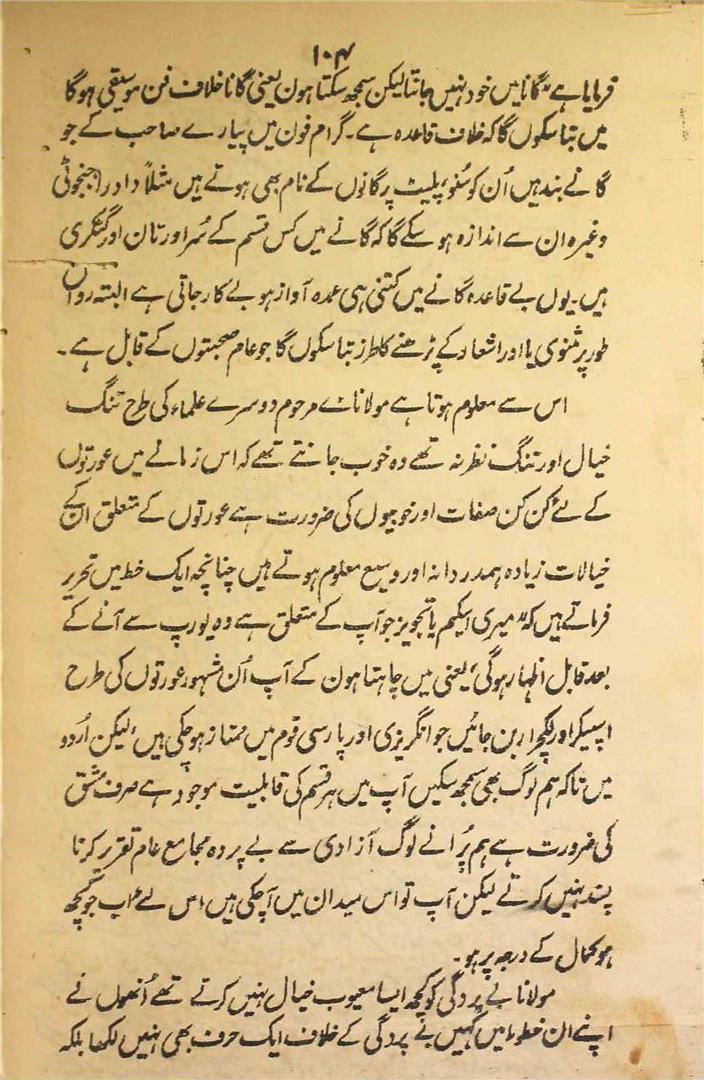 ۱۰۴
فرمایا ہے "گانا میں خود نہیں جانتا لیکن سمجھ سکتا ہون یعنی گانا خلاف فن موسیقی ہوگا
میں بتا سکوں گا کہ خلاف قاعدہ ہے۔ گرام فون میں پیارے صاحب کے جو
گانے بند ہیں اُن کو سُنو، پلیٹ پر گانوں کے نام بھی ہوتے ہیں مثلاً دادرا جھنجوٹی
وغیرہ ان سے اندازہ ہو سکے گا کہ گانے میں کس قسم کے سُر اور تان اور گٹکری
ہیں۔ یوں بے قاعدہ گانے میں کتنی ہی عمدہ آواز ہو بے کار جاتی ہے البتہ رواں
طور پر مثنوی یا اور اشعار کے پڑھنے کا طرز بتا سکوں گا جو عام صحبتوں کے قابل ہے۔
اس سے معلوم ہوتا ہے مولانائے مرحوم دوسرے علماء کی طرح تنگ
خیال اور تنگ نظر نہ تھے وہ خوب جانتے تھے کہ اس زمانے میں عورتوں
کے لئے کن کن صفات اور خوبیوں کی ضرورت ہے عورتوں کے متعلق ان کے
خیالات زیادہ ہمدردانہ اور وسیع معلوم ہوتے ہیں چنانچہ ایک خط میں تحریر
فرماتے ہیں کہ "میری اسکیم یا تجویز جو آپ کے متعلق ہے وہ یورپ سے آنے کے
بعد قابل اظہار ہوگی، یعنی میں چاہتا ہون کے آپ اُن مشہور عورتوں کی طرح
اسپیکر اور لکچرار بن جائیں جو انگریزی اور پارسی قوم میں ممتاز ہو چکی ہیں، لیکن اُردو
میں تاکہ ہم لوگ بھی سمجھ سکیں آپ میں ہر قسم کی قابلیت موجود ہے صرف مشق
کی ضرورت ہے ہم پُرانے لوگ آزادی سے بے پردہ مجامع عام تقریر کرنا
پسند نہیں کرتے لیکن آپ تو اس میدان میں آ چکی ہیں، اس لئے اب جو کچھ
ہو کمال کے درجہ پر ہو۔
مولانا بے پردگی کو کچھ ایسا معیوب خیال نہیں کرتے تھے اُنھوں نے
اپنے ان خطوط میں کہیں بے پردگی کے خلاف ایک حرف بھی نہیں لکھا بلکہ